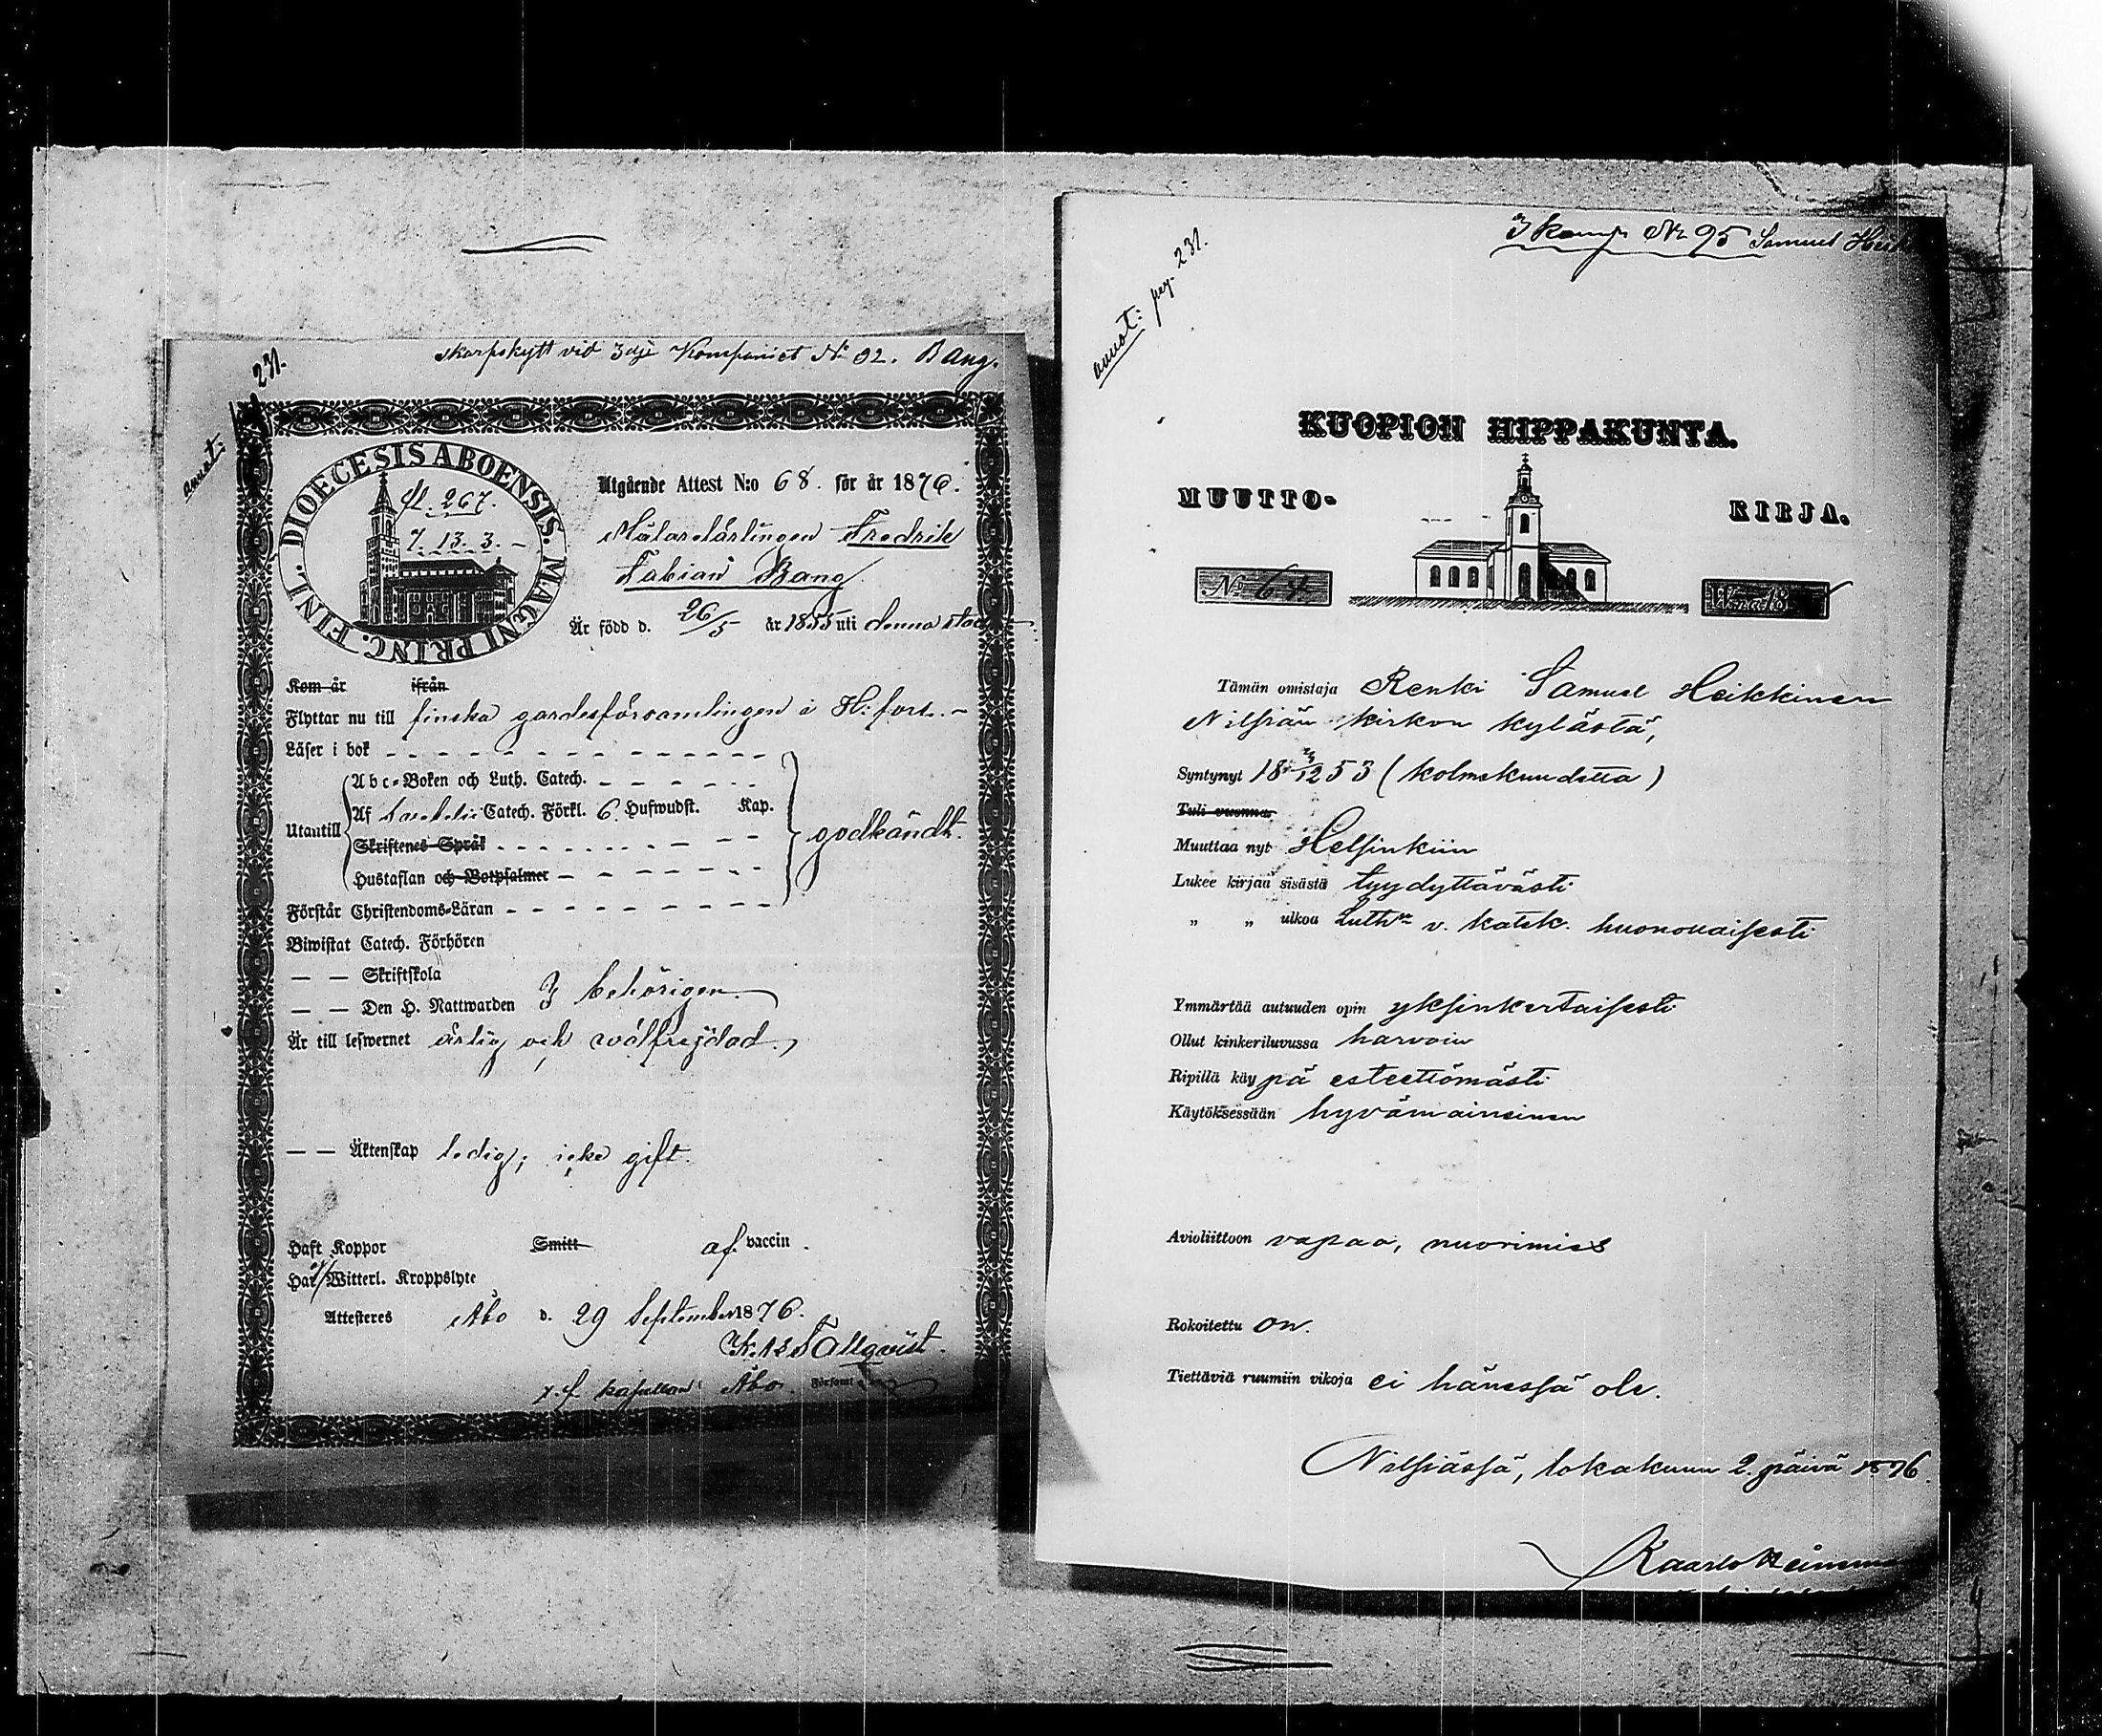 skarpskytt vid 3dje Kompaniet No 92. Bang.
annot: 231.
DIOECESIS ABOENSIS. MAGNI PRINC. FINL.
fl. 267.
7. 13. 3. –
Utgående Attest N:o 68. för år 1876.
Målarelärlingen Fredrik
Fabian Bang
Är född d. 26/5 år 1855 uti denna stad
Kom år ifrån
Flyttar nu till finska gardesförsamlingen i H:fors. –
Läser i bok
Abc-Boken och Luth. Catech.
Utantill
Af Catech. Förkl. 6 Hufwudst. Kap.
godkändt.
Skriftenes Språk
Hustaflan och Botpsalmer
Förstår Christendoms-Läran
Biwistat Catech. Förhören
— — Skriftskola
— — Den H. Nattwarden
} behörigen
Är till lefwernet ärlig och wälfrejdad,
— — Äktenskap ledig; icke gift.
Haft Koppor Smitt af vaccin.
Har Witterl. Kroppslyte
Attesteres Åbo d. 29 September 1876.
Tallqvist.
kapellan Åbo Församl
3 komp No 95 Samuel Heik
annot: pag. 231.
KUOPION HIPPAKUNTA.
MUUTTO- KIRJA.
No 64 W:na 18
Tämän omistaja Renki Samuel Heikkinen
Nilsiän kirkon kylästä,
Syntynyt 18 3/12 53 (kolmekuudetta)
Tuli vuonna
Muuttaa nyt Helsinkiin
Lukee kirjaa sisästä tyydyttävästi
„ „ ulkoa Luthn v. katek. huonouaisesti
Ymmärtää autuuden opin yksinkertaisesti
Ollut kinkeriluvussa harvoin
Ripillä käypä esteettömästi
Käytöksessään hyvämaineinen
Avioliittoon vapaa, nuorimies
Rokoitettu on.
Tiettäviä ruumiin vikoja ei hänessä ole.
Nilsiässä, lokakuun 2. päivä 1876.
Kaarlo